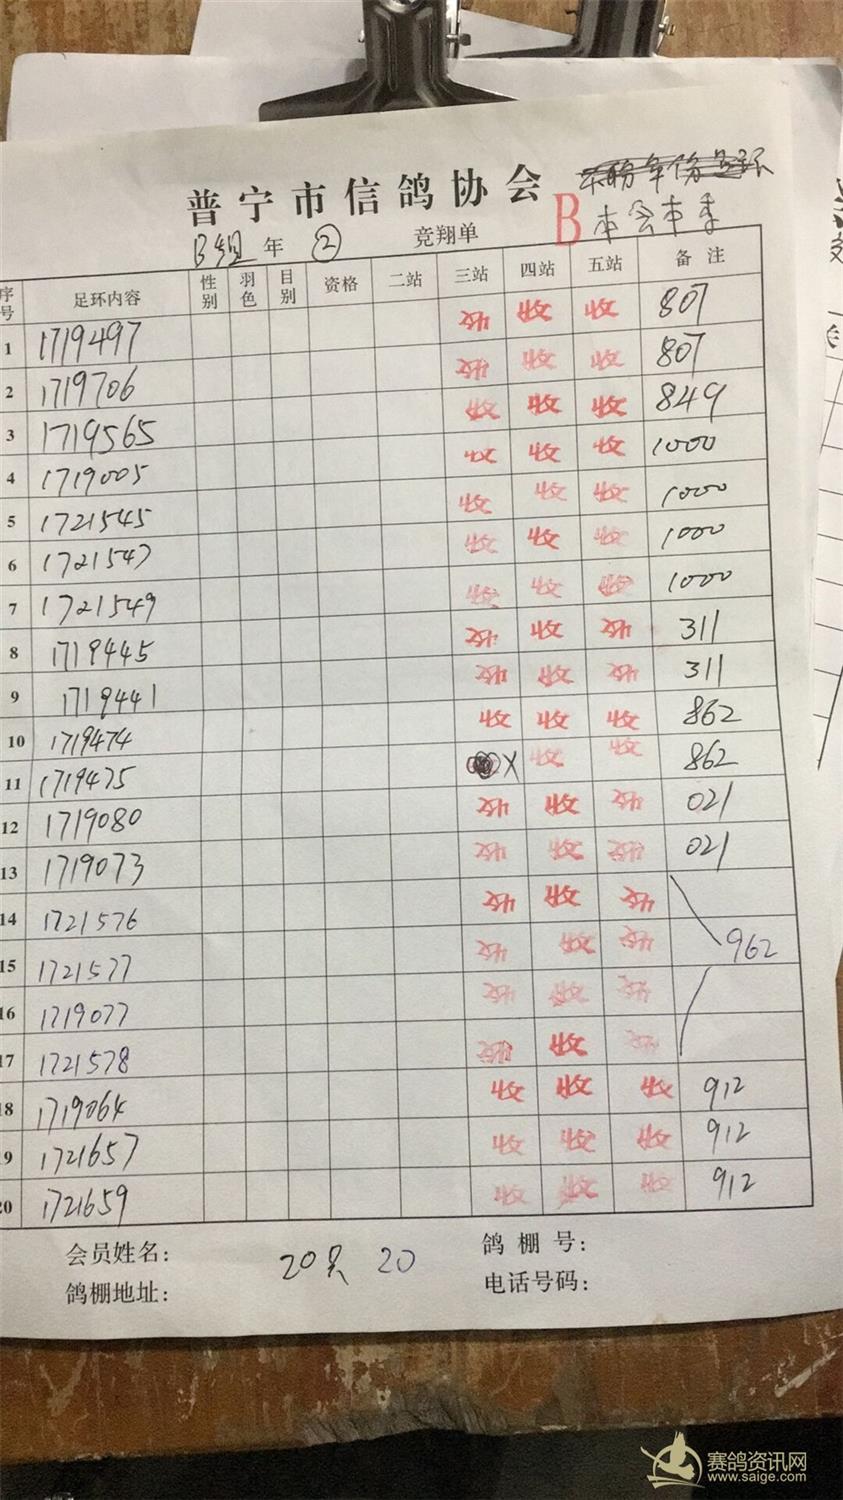 普宁市信鸽协会
B 本会本季
B组 年 ② 竞翔单
序号 足环内容 性别 羽色 目别 资格 二站 三站 四站 五站 备注
1 1719497 收 收 收 807
2 1719706 收 收 收 807
3 1719565 收 收 收 849
4 1719005 收 收 收 1000
5 1721545 收 收 收 1000
6 1721547 收 收 收 1000
7 1721549 收 收 收 1000
8 1719445 收 收 收 311
9 1719441 收 收 收 311
10 1719474 收 收 收 862
11 1719475 X 收 收 862
12 1719080 收 收 收 021
13 1719073 收 收 收 021
14 1721576 收 收 收
15 1721577 收 收 收 962
16 1719077 收 收 收
17 1721578 收 收 收
18 1719064 收 收 收 912
19 1721657 收 收 收 912
20 1721659 收 收 收 912
会员姓名： 20只 20 鸽棚号：
鸽棚地址： 电话号码：
赛鸽资讯网
www.saige.com